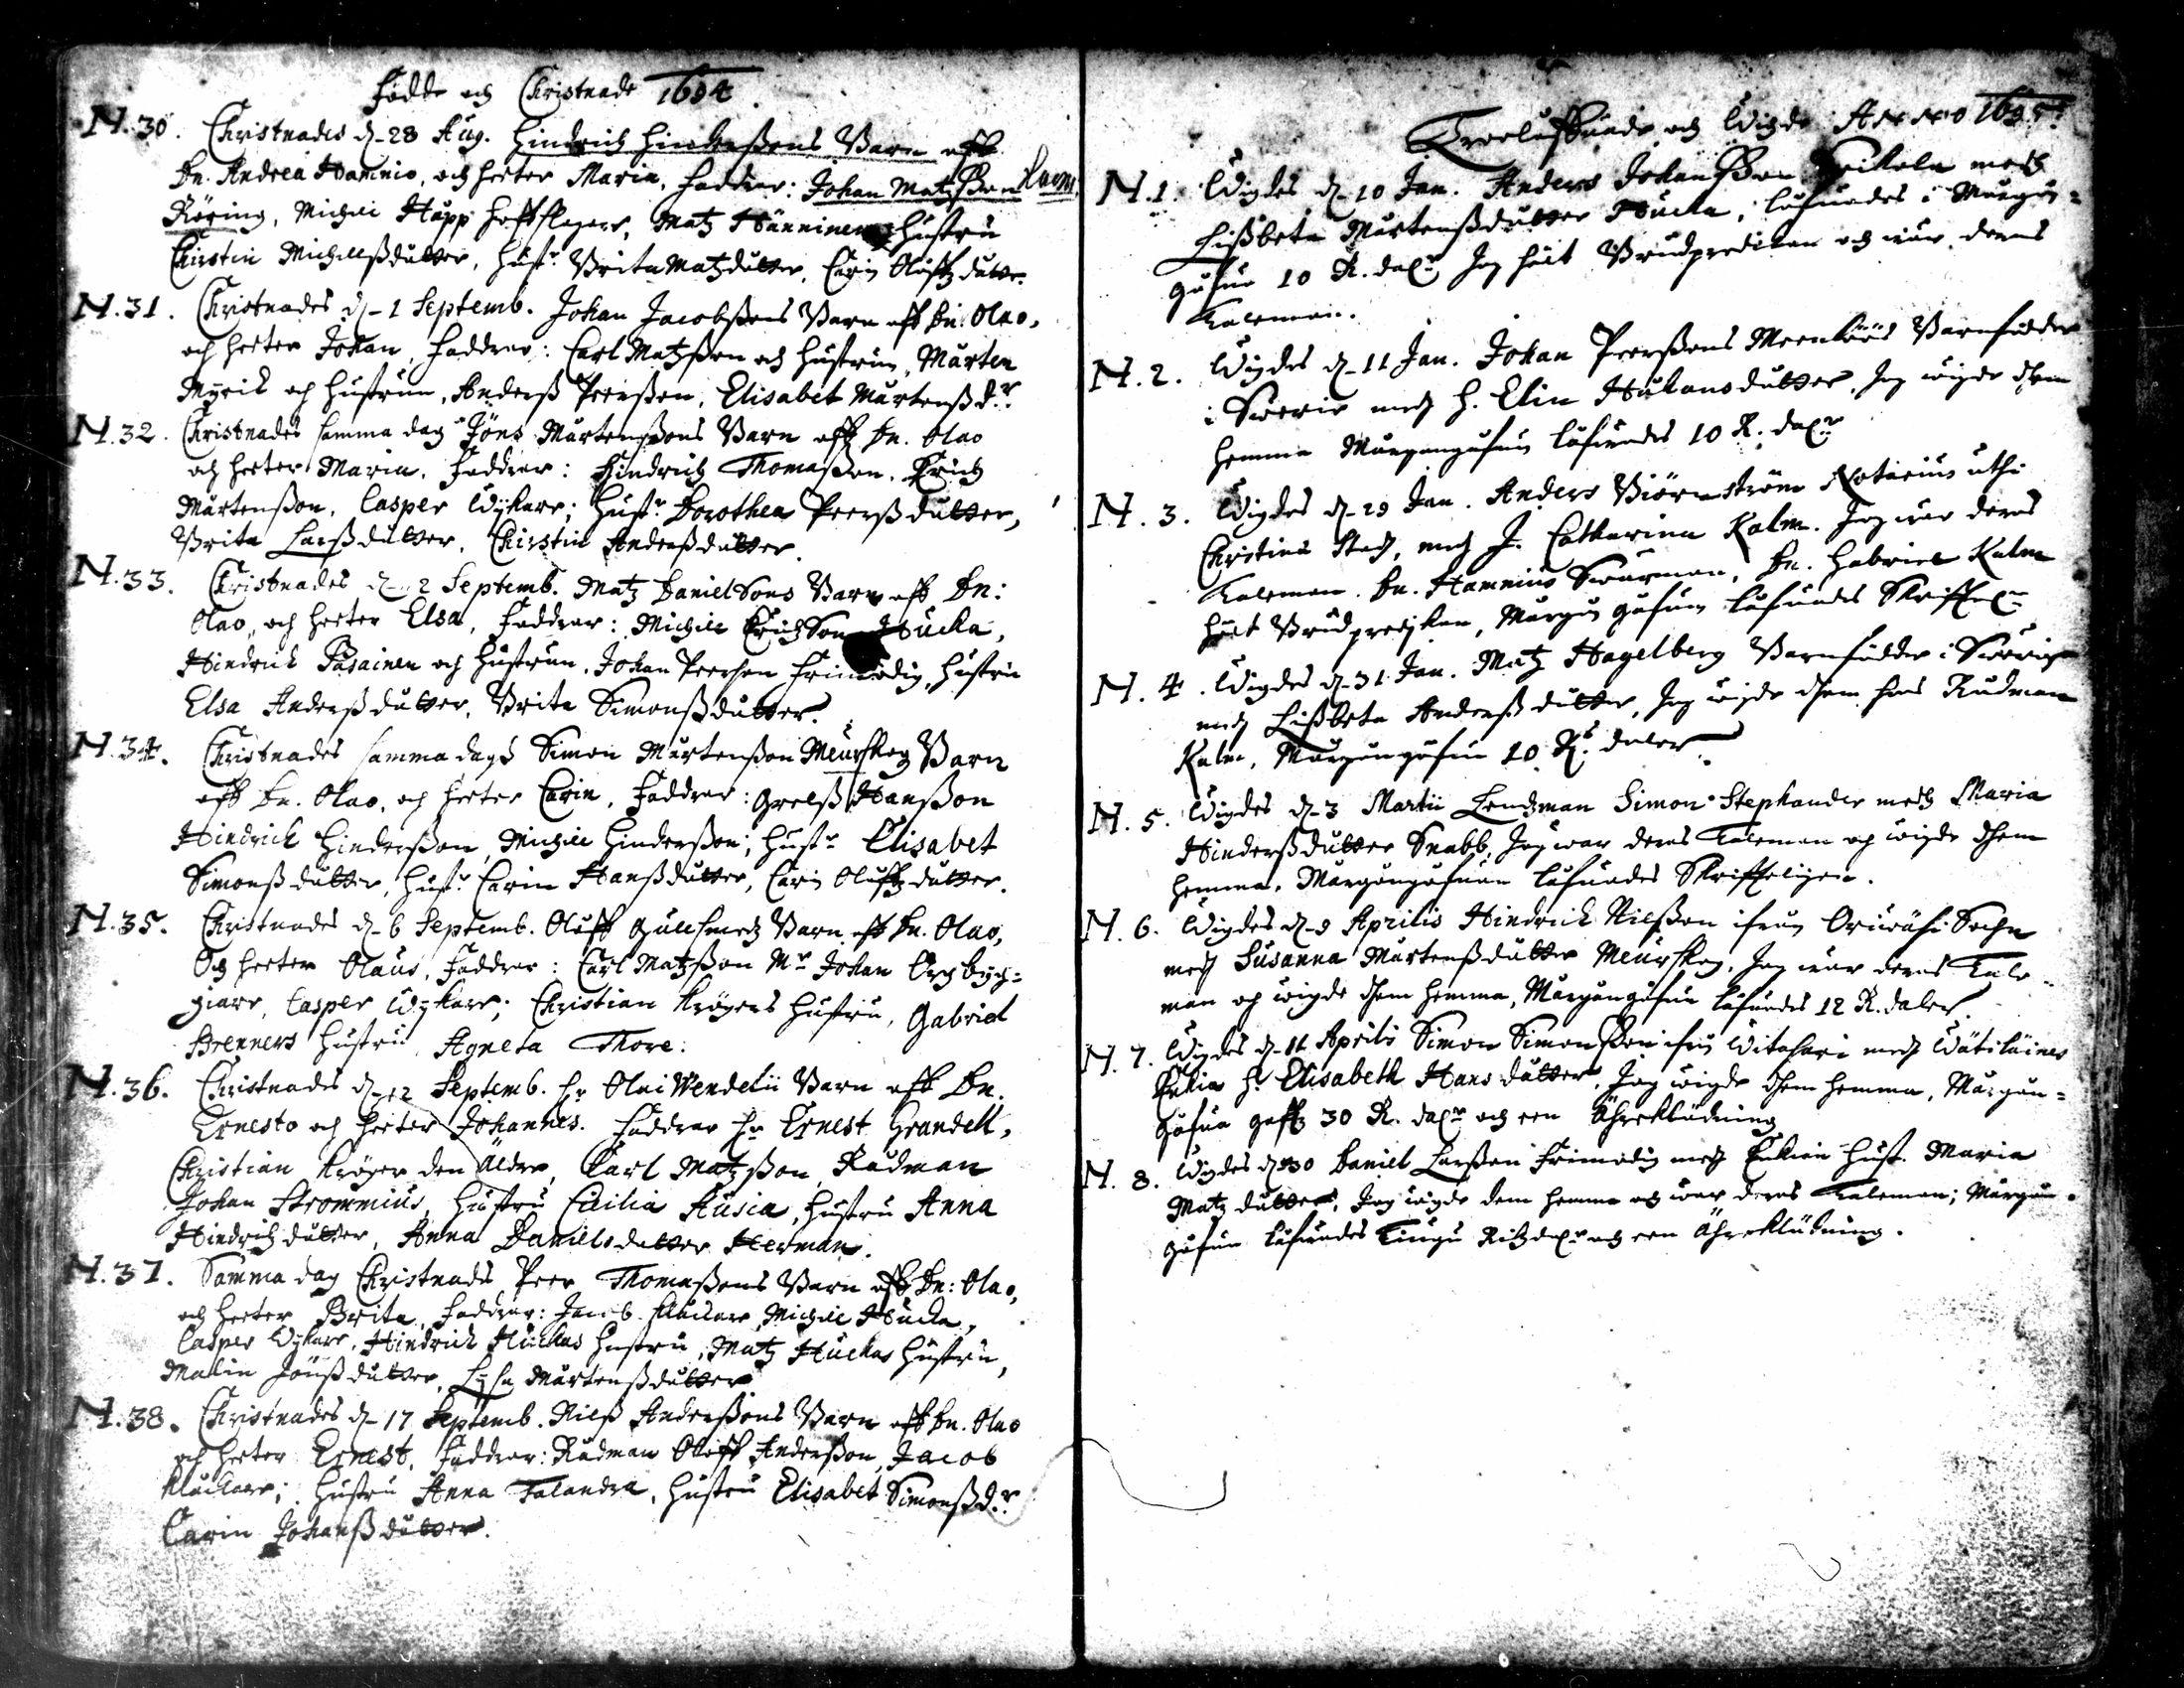 Födde och Christnade 1694
N. 30. Christnades d. 28 Aug. Hindrich Hinderßons Barn aff
Dn. Andrea Hamnio, och heeter Maria, Faddrar: Johan Matzßon
Röring, Michill Happ hofslagare, Matz Hänninen Hustru
Chirstin Michillsdutter, Hustr. Brita Matzdutter, Carin Oluffzdutter
N. 31. Christnades d. 1 Septemb. Johan Jacobßons Barn aff Dn. Olao,
och heeter Johan, Faddrar: Carl Matzßon och hustrun, Mårten
Myrick och hustrun, Anderß Peerßon, Elisabet Mårtenß dr.
N. 32. Christnades samma dag Jöns Mårtenßons Barn aff Dn. Olao
och heeter Maria. Faddrar: Hindrich Thomaßon, Erich
Mårtenßon, Casper Wykare; Hustr. Dorothea Peerßdutter,
Brita Larßdutter, Chirstin Anderßdutter.
N. 33. Christnades d. 2 Septemb. Matz Danielsons Barn aff Dn:
Olao, och heeter Elsa, Faddrar: Michill Erichson Hucka,
Hindrich Pasainen och hustrun, Johan Peerson Frimodig, hustru
Elsa Anderßdutter, Brita Simonßdutter.
N. 34. Christnades samma dagh Simon Mårtenßon Meurskog Barn
aff Dn. Olao, och heeter Carin, Faddrar: Grelß Hanßon
Hindrich Hinderßon, Michill Hinderßon; Hustr. Elisabet
Simonßdutter, Hustr. Carin Hanßdutter, Carin Oluffzdutter.
N. 35. Christnades d. 6 Septemb. Oluff Gullsmedz Barn aff Dn. Olao,
Och heeter Olaus, Faddrar: Carl Matzßon Mr. Johan Orgbyg=
giare, Casper Wykare; Christian Krögers hustru, Gabriel
Brenners hustru Agneta Thore.
N. 36. Christnades d. 12 Septemb. Hr Olai Wendelii Barn aff Dn.
Ernesto och heeter Johannes. Faddrar Hr Ernest Grandell,
Christian Kröger den äldre, Carl Matzßon, Rådman
Johan Strommius, hustru Cecilia Ausia, hustru Anna
Hindrichdutter, Anna Danielsdutter Herman.
N. 37. Samma dag Christnades Peer Thomaßons Barn aff Dn: Olao,
och heeter Brita, Faddrar: Jacob Kläckare, Michill Hucka,
Casper Wykare, Hindrich Huckas hustru, Matz Huckas hustru,
Malin Jönßdutter, Lisa Mårtenßdutter
N. 38. Christnades d. 17 Septemb. Nilß Anderßons Barn aff Dn. Olao
och heeter Ernest, Faddrar: Rådman Oluff Anderßon, Jacob
Klåckare; hustru Anna Falandra, hustru Elisabet Simonßdr.
Carin Johanßdutter.
Troolufwade och Wigde Anno 1695.
N. 1. Wigdes d. 10 Jan. Anders Johanßon med
Lißbeta Mårtenßdutter Hucka, lofwades i Morgon=
gåfwa 10 R. dalr. Jag hölt Brudpredikan och war deras
Taleman.
N. 2. Wigdes d. 11 Jan. Johan Peerßons Barnfödder
i Swerie med H. Elin Håkansdutter, Jag wigde dhem
hemma Morgongåfwa lofwades 10 R. dalr
N. 3. Wigdes d. 29 Jan. Anders Biörnström Notarius uthi
Christina Stad, med J. Catharina Kalm. Jag war deras
Taleman. Dn. Hamnius Swarman, Dn. Gabriel Kalm
hölt Brudpredijkan, Morgongåfwa lofwades Skriffel.
N. 4. Wigdes d. 31 Jan. Matz Hagelberg Barnfödder i Swerige
med Lißbeta Anderßdutter, Jag wigde dhem hos Rådman
Kalm, Morgongåfwa 10 R. daler.
N. 5. Wigdes d. 3 Martii Lendzman Simon Stephander med Maria
Hinderßdutter Snabb, Jag war deras Taleman och wigde dhem
hemma, Morgongåfwan lofwades Skriffteligen.
N. 6. Wigdes d. 9 Aprilis Hindrich Nilßon ifrån Oriwäsi Sochn
med Susanna Mårtenßdutter Meurskog, Jag war deras Tale=
man och wigde dhem hemma, Morgongåfwa lofwades 12 R. daler.
N. 7. Wigdes d. 11 Aprilis Simon Simonßon ifrån Witasari med Wätiläines
Enkia H. Elisabeth Hansdutter, Jag wigde dhem hemma, Morgon=
gåfwa gaffz 30 R. dalr och een Ähreklädning
N. 8. Wigdes d. 30 Daniel Larßon Frimodig med Enkian Hust. Maria
Matzdutter, Jag wigde dem hemma och war deras Taleman; Morgon=
gåfwa lofwades Tiugu Rikzdalr och een Ähreklädning.